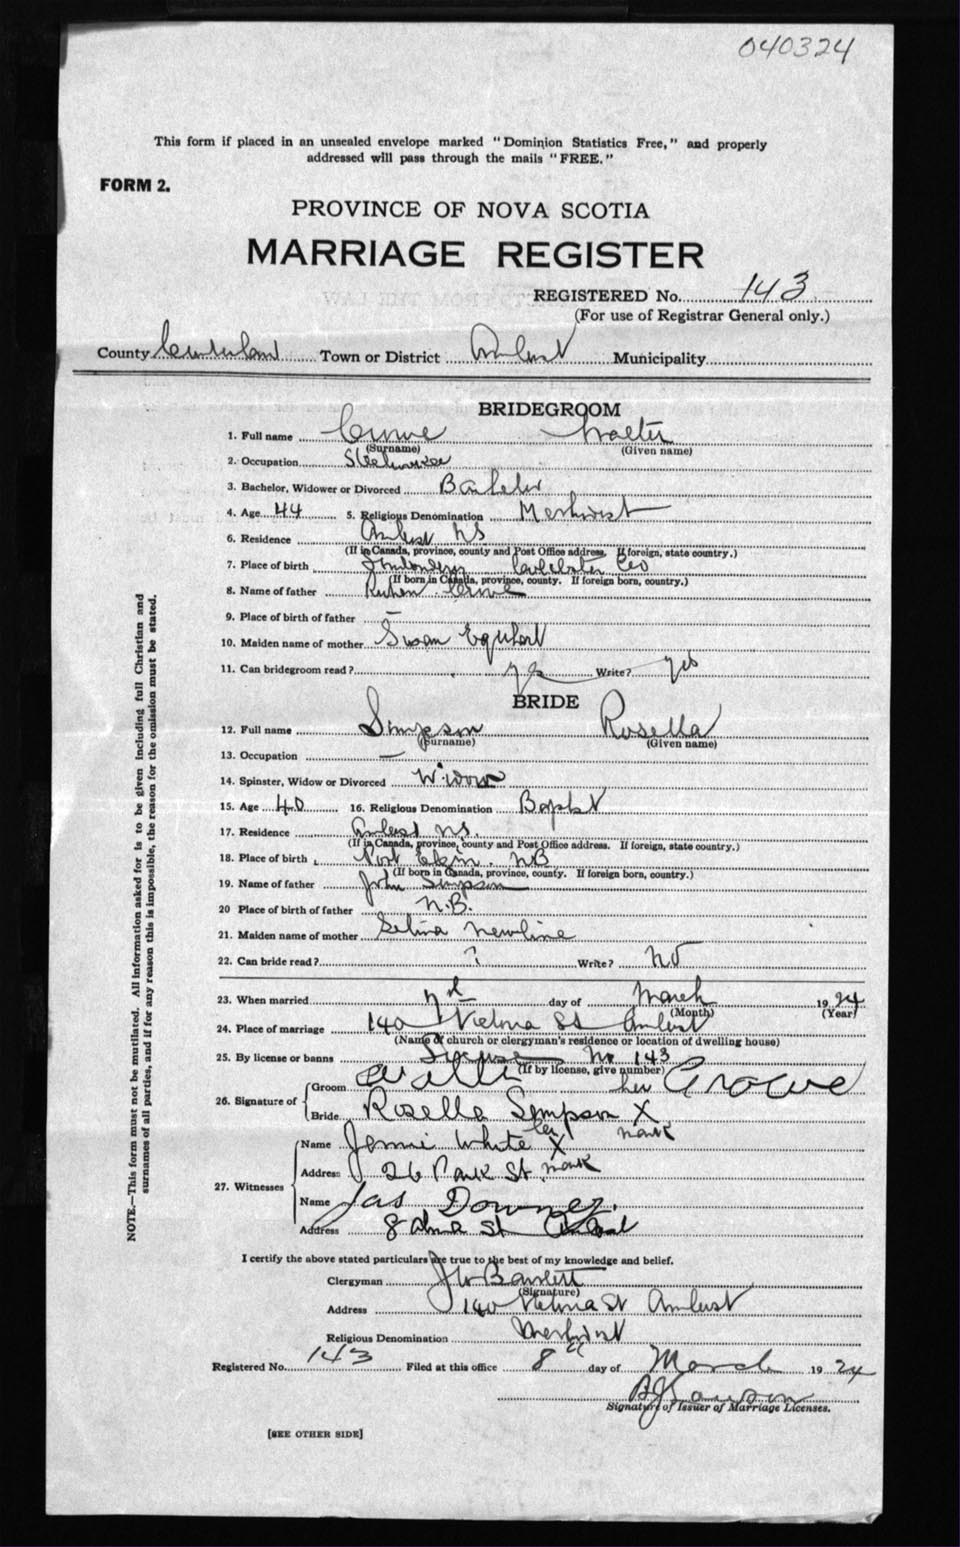 040324
This form if placed in an unsealed envelope marked "Dominion Statistics Free," and properly
addressed will pass through the mails "FREE."
FORM 2.
PROVINCE OF NOVA SCOTIA
MARRIAGE REGISTER
REGISTERED No. 143
(For use of Registrar General only.)
County Cumberland Town or District Amherst Municipality
BRIDEGROOM
1. Full name Crowe Walter
(Surname) (Given name)
2. Occupation Steelworker
3. Bachelor, Widower or Divorced Bachelor
4. Age 44 5. Religious Denomination Methodist
6. Residence Amherst NS
(If in Canada, province, county and Post Office address. If foreign, state country.)
7. Place of birth Londonderry Colchester Co
(If born in Canada, province, county. If foreign born, country.)
8. Name of father Ruben Crowe
9. Place of birth of father —
10. Maiden name of mother Susan Urquhart
11. Can bridegroom read? yes Write? yes
BRIDE
12. Full name Simpson Rosella
(Surname) (Given name)
13. Occupation —
14. Spinster, Widow or Divorced Widow
15. Age 40 16. Religious Denomination Baptist
17. Residence Amherst NS.
(If in Canada, province, county and Post Office address. If foreign, state country.)
18. Place of birth Port Elgin. NB
(If born in Canada, province, county. If foreign born, country.)
19. Name of father John Simpson
20 Place of birth of father N.B.
21. Maiden name of mother Selina Newline
22. Can bride read? ? Write? No
23. When married day of March 1924
(Month) (Year)
24. Place of marriage 140 Victoria St Amherst
(Name of church or clergyman's residence or location of dwelling house)
25. By license or banns License No 143
(If by license, give number)
26. Signature of
Groom Walter Crowe
her
Bride Rosella Simpson X
mark
27. Witnesses
Name Jennie White X
her
Address 26 Park St. mark
Name Jas Downey.
Address 8 Alma St Amherst
I certify the above stated particulars are true to the best of my knowledge and belief.
Clergyman
(Signature)
Address 140 Victoria St Amherst
Religious Denomination Methodist
Registered No. 143 Filed at this office 8th day of March 1924
Signature of Issuer of Marriage Licenses.
[SEE OTHER SIDE]
NOTE.—This form must not be mutilated. All information asked for is to be given including full Christian and
surnames of all parties, and if for any reason this is impossible, the reason for the omission must be stated.